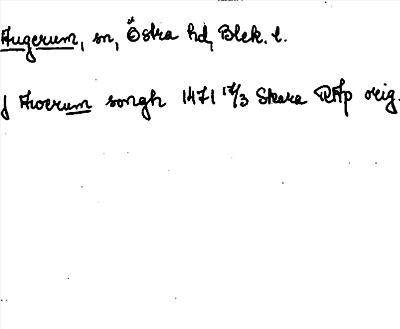 Augerum, sn, Östra hd, Blek. l.
J Awerum songh 1471 17/3 Skara RAp orig.